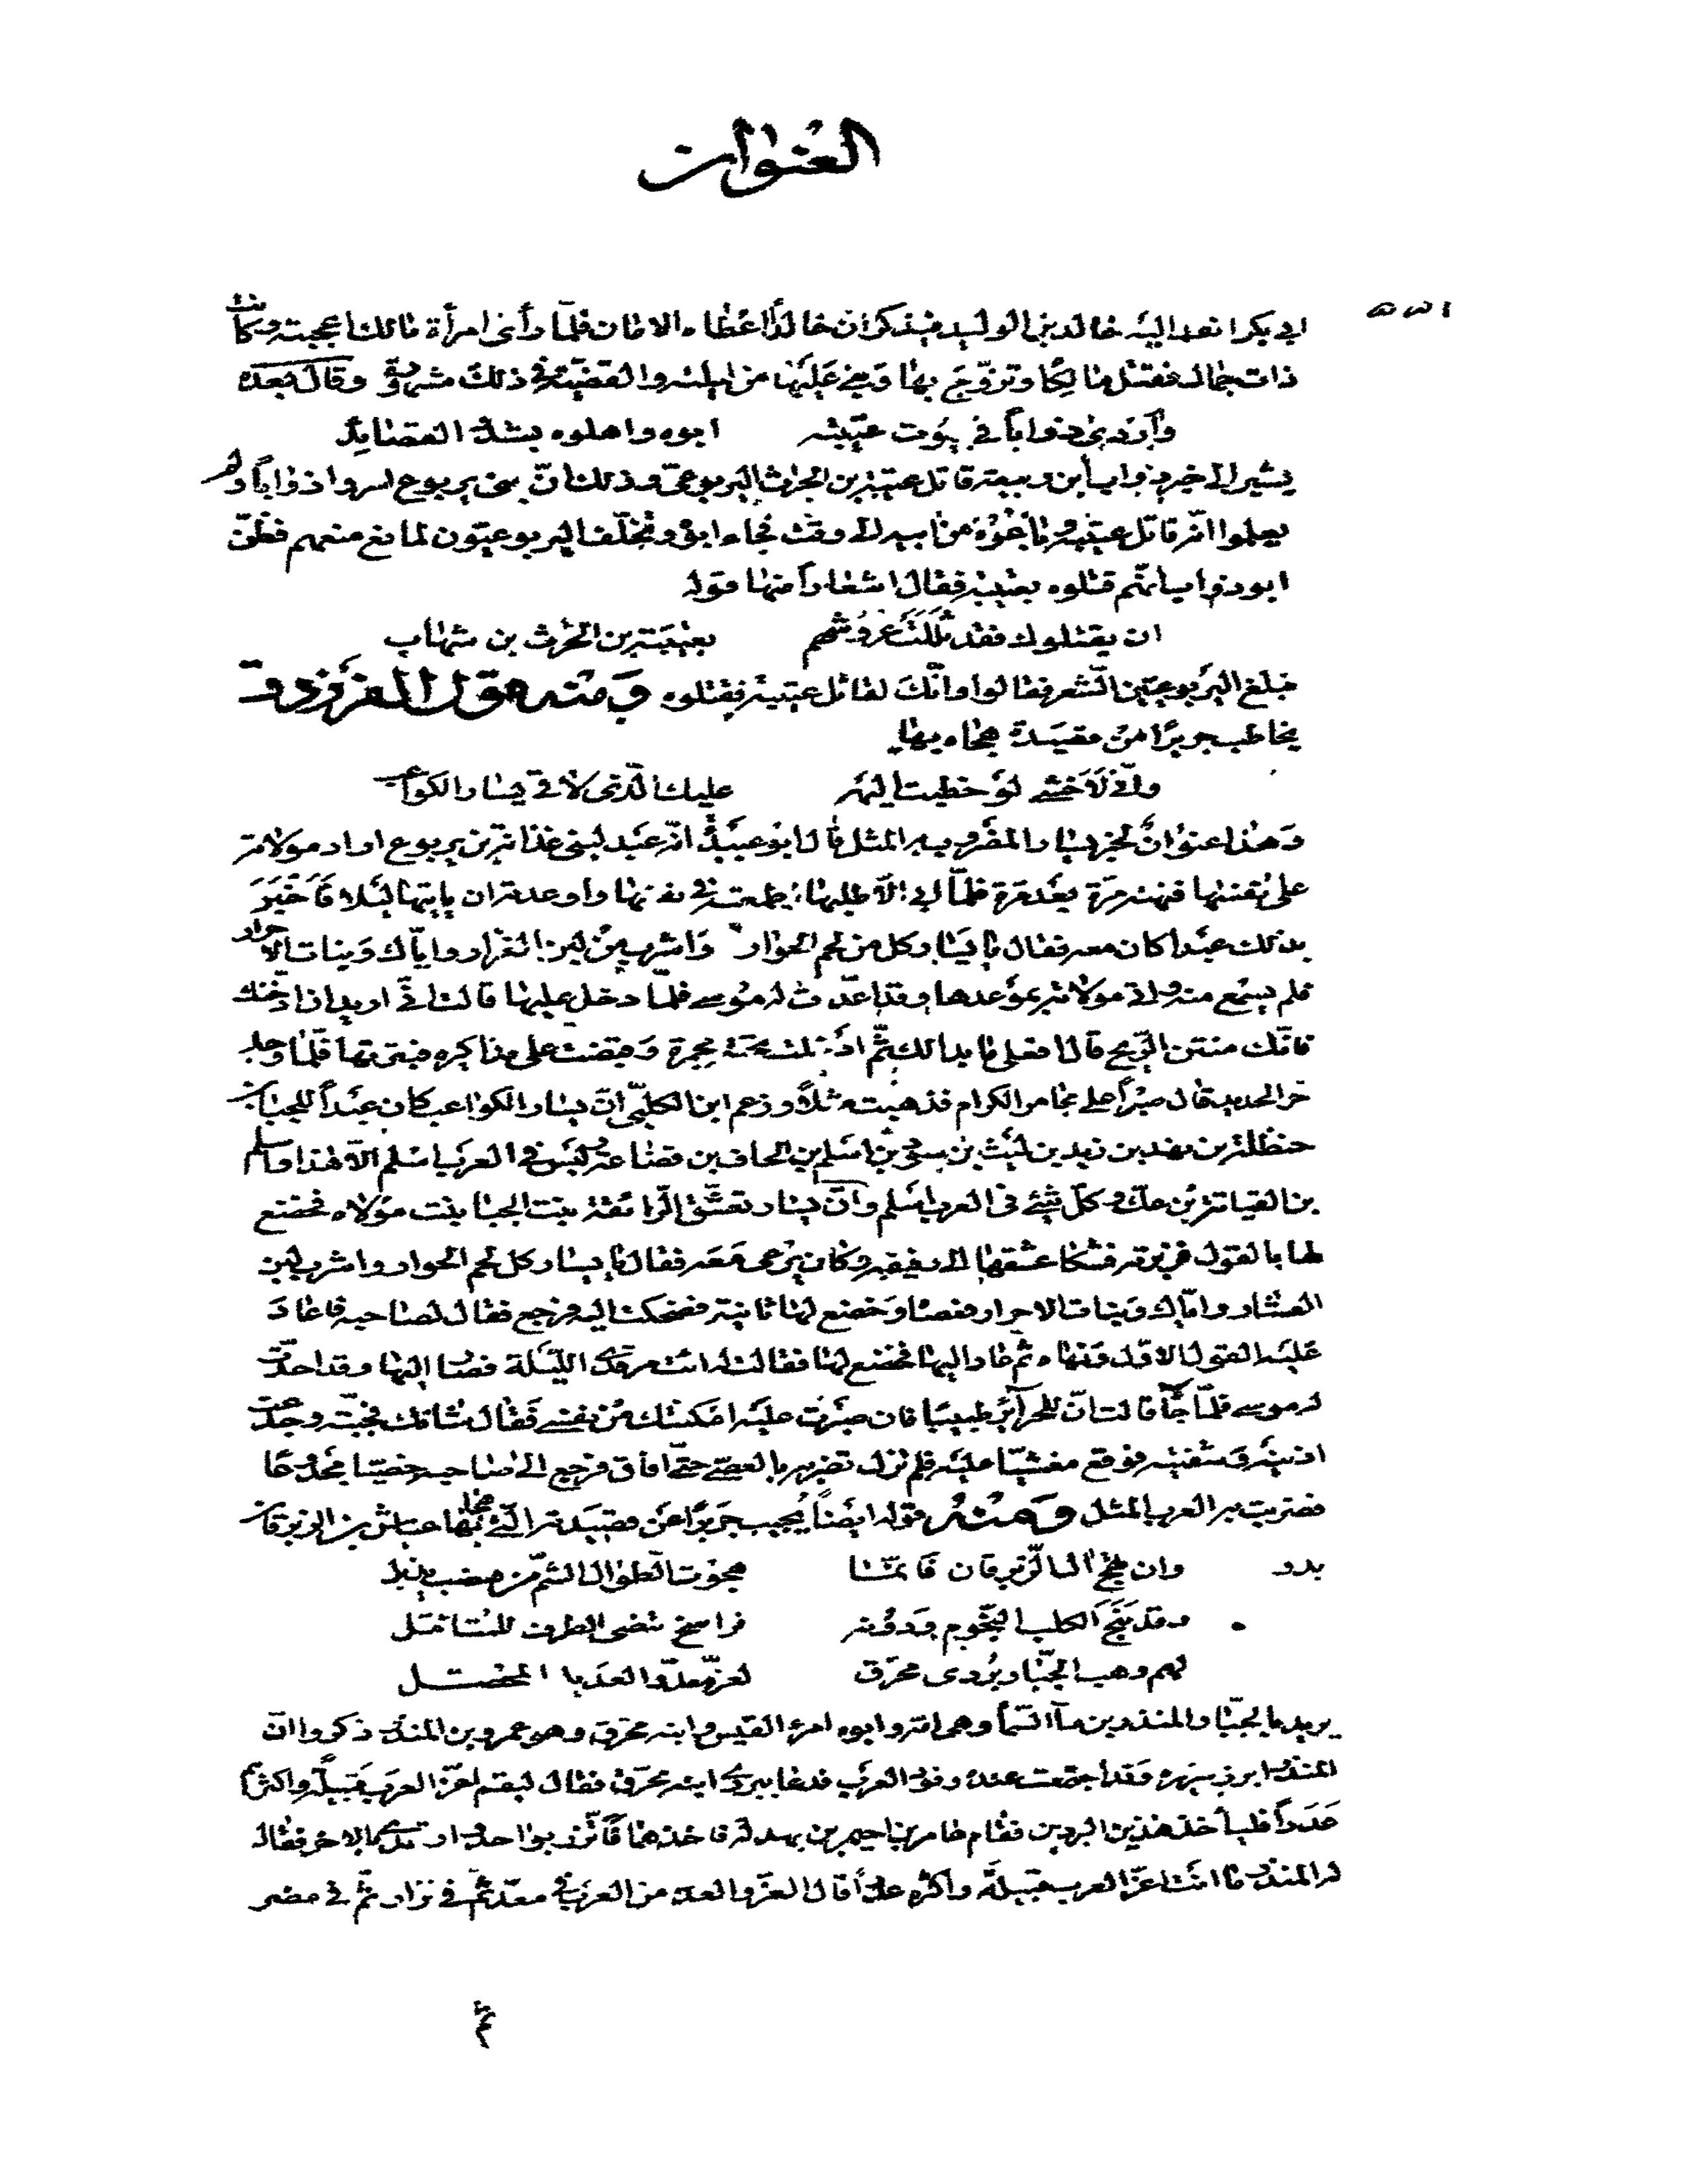 العنوان
ابي بكر انفد اليه خالد بن الوليد فيذكر ان خالدًا اعطاه الامان فلمّا رأى امرأة مالك اعجبته وكانت
ذات جمال فقتل مالكًا وتزوّج بها وَهي عَلَيْها من ابله والقضيّة في ذلك مشهورة وقال بعده
وأرْدى ذؤاباً في بيُوت عتيبه ابوه واهلوه بشدّ القصايد
يشير الى خبر ذواب أبن ربيعة قاتل عتيبة بن الحرث اليربوعيّ وذلك انّ بني يربوع اسروا ذؤاباً ولم
يعلموا انّه قاتل عتيبه فباعُوْهُ من ابيه الى وقت فجاء ابوه وتخلّف اليربوعيّون لمانع منعهم فظنّ
ابو ذواب انهم قتلوه بعتيبة فقال اشعاراً منها قوله
ان يقتلوك فقد ثلَلْتَ عرُوشهم بعتيبَة بن الحرْث بن شهاب
فبلغ اليربوعيّين الشعر فقالوا وانّكَ لقاتل عتيبة فقتلوه وَمنه قول الفرزدق
يخاطب جريرًا من قصيدة هجاه بها
وانّي لَاَخشى لوْ خطبت اليهم عليك الّذي لاقى يسار الكواعب
وَهذا عنوانٌ لخبر يسار المضروب به المثل قال ابوُ عبيدة انّه عبْد لبني غذانة بن يربوع اراد مولاته
على نفسها فنهته مرّة بعْد مرة فلمّا ابى الّا طلبها اطمعته في نفسها واوعدته ان ياتيها ليلا فَاَخْبَرَ
بذلك عبْدا كان معه فقال يا يسار كل من لحم الحوار وَاشرب من لبن الغزار وايّاك وَبنات الاحرار
فلم يسمع منه واتى مولاته بموْعدها وقد اعدّت له موُسى فلمّا دخل عليها قالت انّي اريد ان ادخنك
فانّك منتن الريح قال افعلى ما بدا لك ثمّ ادخلت تحته مجمرة وَقبضت على مذاكيره فبترتها فلمّا وجد
حرّ الحديد قال صبْراً على مجامر الكرام فذهبت مثلاً وزعم ابن الكلبيّ انّ يسار الكواعب كان عبْداً للجبار بن
حنظلة بن نهد بن زيد بن ليث بن سود بن اسْلم بن الحاف بن قضاعة وليْس في العرب اسْلم الّا هذا واسلم
بن القياتة بْن عكّ وكلّ شئ في العرب اسْلم وانّ يسار تعشّق الرّائقة بنت الجبار بنت موْلاه فخضع
لها بالقول فزبرته فشكا عشقها الى رفيقه وكان يرْعى مَعَه فقال يا يسار كل لحم الحوار واشرب لبن
العشار وايّاك وَبنات الاحرار فعصاه وَخضع لها ثانية فضحكت اليه فرجع فقال لصاحبه فاعادَ
عَليْه القول الاوّل وَنهاه ثم عاد اليها فخضع لها فقالت له ائت مرقدي الليْلة فصار اليها وقد احدّت
له موسى فلمّا جاءَ قالت انّ للحرآئر طيبا فان صبرْت عليْه امكنتك من نفسي فَقال شانك فجبّته وجدعت
اذنيْه وَشفتيْه فوقع مغشيّا عليْه فلم تزل تضربه بالعصي حتّى افاق فرجع الى صاحبه خصيّا مجدوعا
فضربت به العرب المثل وَمنْهُ قوله ايضاً يُجيب جَريرًا عن قصيَدته الّتي هجا بها عياش بن الزبرقان بن
بدر وان تهجُ ال الزبرقان فَانمّا هجوْت الطوال الشمّ من هضب يذبل
وقد ينبَح الكلب النجُوم وَدوُنه فراسخ تنضى الطرف للمتامّل
لهم وهب الجبّار برُدى محرّق لعزّ معدّ والعدَيد المحصّل
يريد بالجبّار المنذر بن مآء السّمآء وهى امّه وابوه امرء القيس وابنه محرّق وهو عمرو بن المنذر ذكروا انّ
المنذر ابرز سريره وَقد اجتمعت عنده وفود العرَب فدعا ببردى ابنه محرّق فقال ليقم اعزّ العرَب قبيلة واكثرهم
عَددَاً فليأخذ هذين البردين فقام عامر بن احيمر بن بهدلة فاخذهما فَأتّزر بواحد وارتدى بالاخر فقال
له المنذر ما انت اعزّ العرب قبيلة واكثرهم عددأ قال العزّ والعدد من العرَب في معدّ ثمّ في نزار ثمّ في مضر
ثم